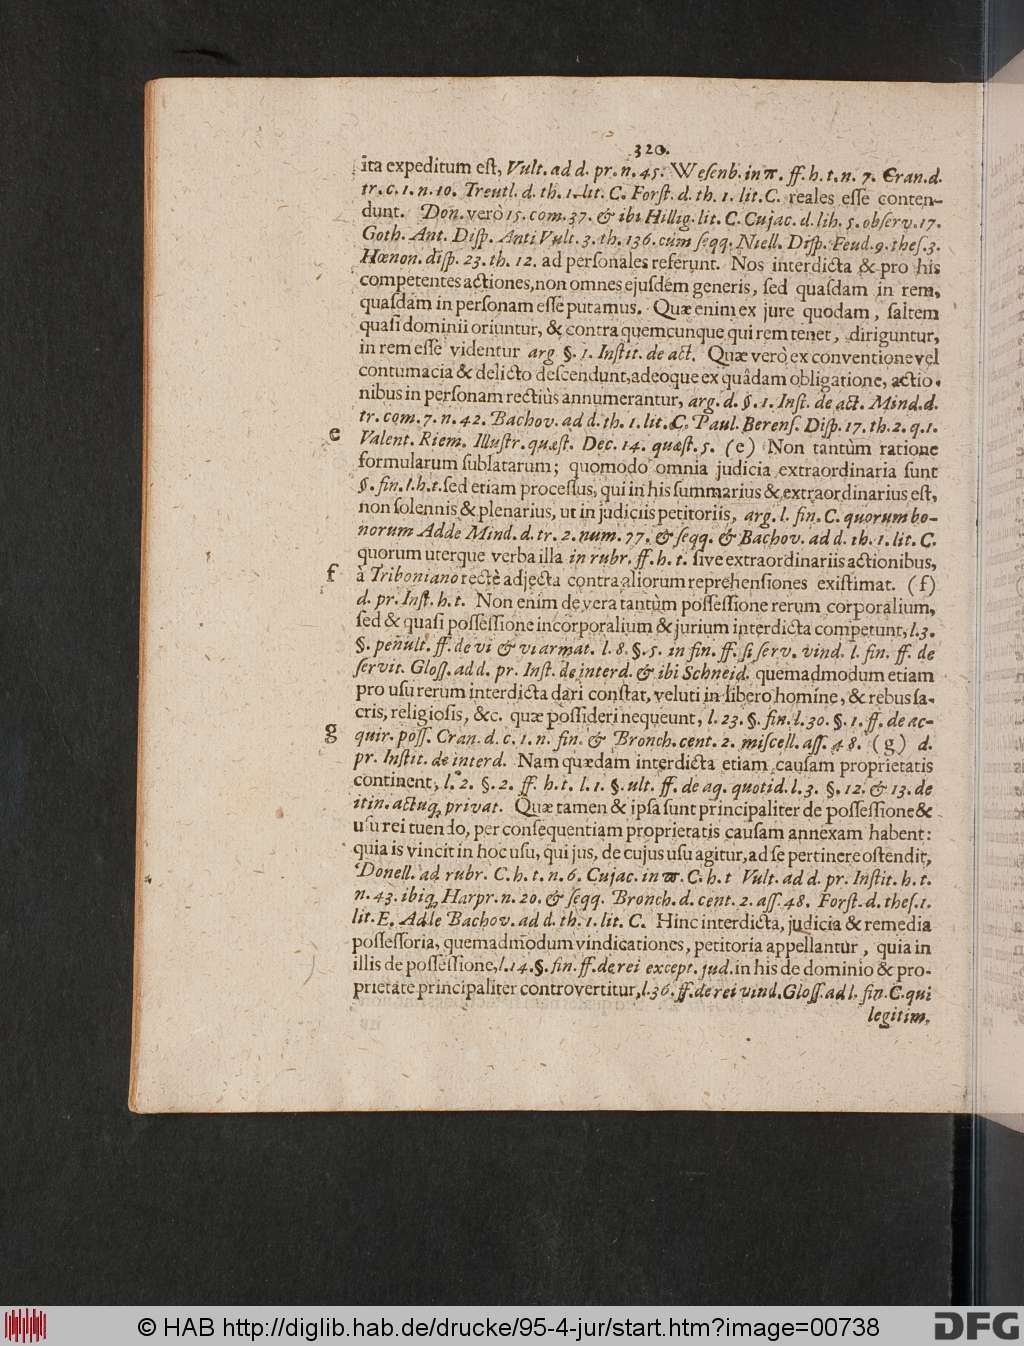 320.
ita expeditum eſt, Vult. ad d. pr. n. 45. Weſenb. in π. ff. h. t. n. 7. Cran. d.
tr. c. 1. n. 10. Treutl. d. th. 1. lit. C. Forſt. d. th. 1. lit. C. reales eſſe conten-
dunt. Don. verò 15. com. 37. & ibi Hillig. lit. C. Cujac. d. lib. 5. obſerv. 17.
Goth. Ant. Diſp. Anti Vult. 3. th. 136. cum ſeqq. Niell. Diſp. Feud. 9. theſ. 3.
Hœnon. diſp. 23. th. 12. ad perſonales referunt. Nos interdicta & pro his
competentes actiones, non omnes ejuſdem generis, ſed quaſdam in rem,
quaſdam in perſonam eſſe putamus. Quæ enim ex jure quodam, ſaltem
quaſi dominii oriuntur, & contra quemcunque qui rem tenet, diriguntur,
in rem eſſe videntur arg. §. 1. Inſtit. de act. Quæ verò ex conventione vel
contumacia & delicto deſcendunt, adeoque ex quâdam obligatione, actio-
nibus in perſonam rectiùs annumerantur, arg. d. §. 1. Inſt. de act. Mind. d.
tr. com. 7. n. 42. Bachov. ad d. th. 1. lit. C. Paul. Berenſ. Diſp. 17. th. 2. q. 1.
e Valent. Riem. Illuſtr. quæſt. Dec. 14. quæſt. 5. (e) Non tantùm ratione
formularum ſublatarum; quomodo omnia judicia extraordinaria ſunt
§. fin. l. h. t. ſed etiam proceſſus, qui in his ſummarius & extraordinarius eſt,
non ſolennis & plenarius, ut in judiciis petitoriis, arg. l. fin. C. quorum bo-
norum Adde Mind. d. tr. 2. num. 77. & ſeqq. & Bachov. ad d. th. 1. lit. C.
quorum uterque verba illa in rubr. ff. h. t. ſive extraordinariis actionibus,
f à Triboniano rectè adjecta contra aliorum reprehenſiones exiſtimat. (f)
d. pr. Inſt. h. t. Non enim de vera tantùm poſſeſſione rerum corporalium,
ſed & quaſi poſſeſſione incorporalium & jurium interdicta competunt, l. 3.
§. penult. ff. de vi & vi armat. l. 8. §. 5. in fin. ff. ſi ſerv. vind. l. fin. ff. de
ſervit. Gloſſ. ad d. pr. Inſt. de interd. & ibi Schneid. quemadmodum etiam
pro uſu rerum interdicta dari conſtat, veluti in libero homine, & rebus ſa-
cris, religioſis, &c. quæ poſſideri nequeunt, l. 23. §. fin. l. 30. §. 1. ff. de ac-
g quir. poſſ. Cran. d. c. 1. n. fin. & Bronch. cent. 2. miſcell. aſſ. 48. (g) d.
pr. Inſtit. de interd. Nam quædam interdicta etiam cauſam proprietatis
continent, l. 2. §. 2. ff. h. t. l. 1. §. ult. ff. de aq. quotid. l. 3. §. 12. & 13. de
itin. actuq; privat. Quæ tamen & ipſa ſunt principaliter de poſſeſſione &
uſu rei tuendo, per conſequentiam proprietatis cauſam annexam habent:
quia is vincit in hoc uſu, qui jus, de cujus uſu agitur, ad ſe pertinere oſtendit,
Donell. ad rubr. C. h. t. n. 6. Cujac. in π. C. h. t Vult. ad d. pr. Inſtit. h. t.
n. 43. ibiq; Harpr. n. 20. & ſeqq. Bronch. d. cent. 2. aſſ. 48. Forſt. d. theſ. 1.
lit. E. Adde Bachov. ad d. th. 1. lit. C. Hinc interdicta, judicia & remedia
poſſeſſoria, quemadmodum vindicationes, petitoria appellantur, quia in
illis de poſſeſſione, l. 14. §. fin. ff. de rei except. jud. in his de dominio & pro-
prietate principaliter controvertitur, l. 36. ff. de rei vind. Gloſſ. ad l. fin. C. qui
legitim.
© HAB http://diglib.hab.de/drucke/95-4-jur/start.htm?image=00738
DFG